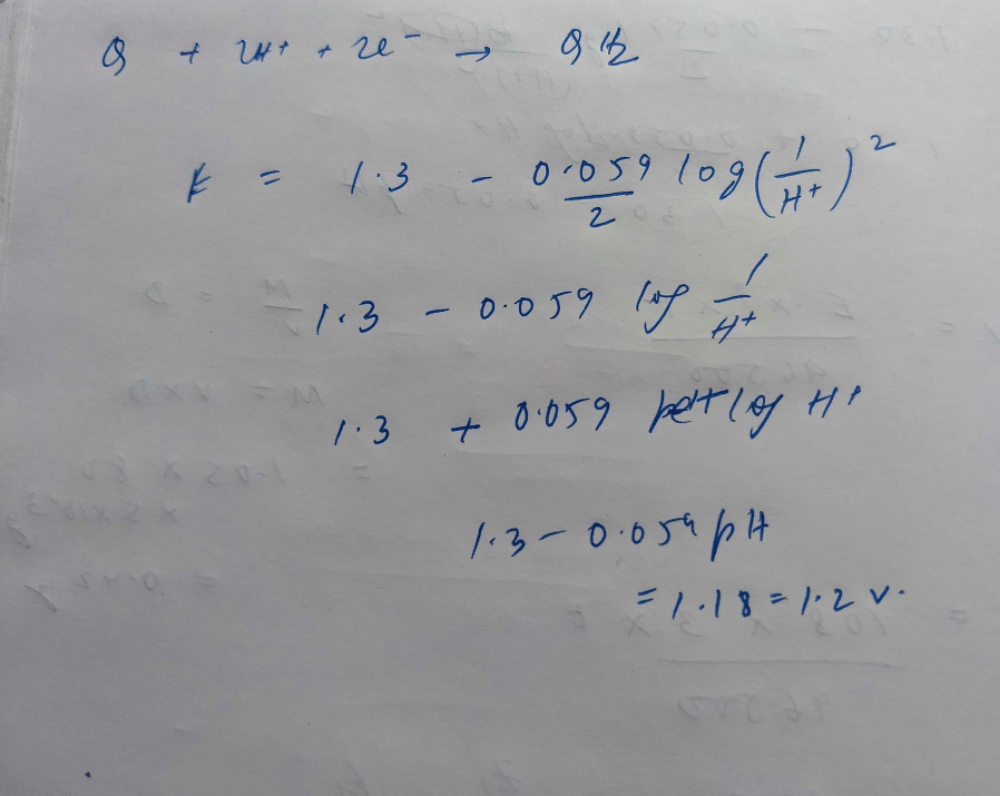 Q + 2H+ + 2e- → QH2
E = 1.3 - 0.059/2 log(1/H+)^2
1.3 - 0.059 log 1/H+
1.3 + 0.059 log H+
1.3 - 0.059 pH
= 1.18 = 1.2 v.